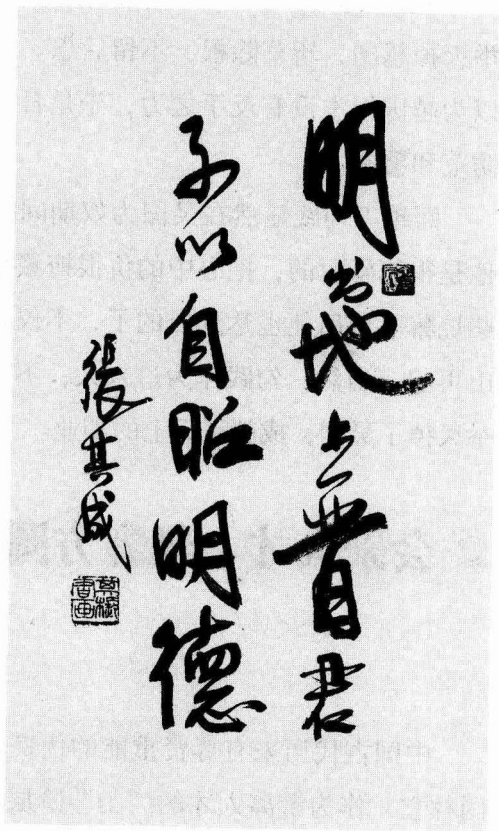 明出地上晋君
子以自昭明德
張其成